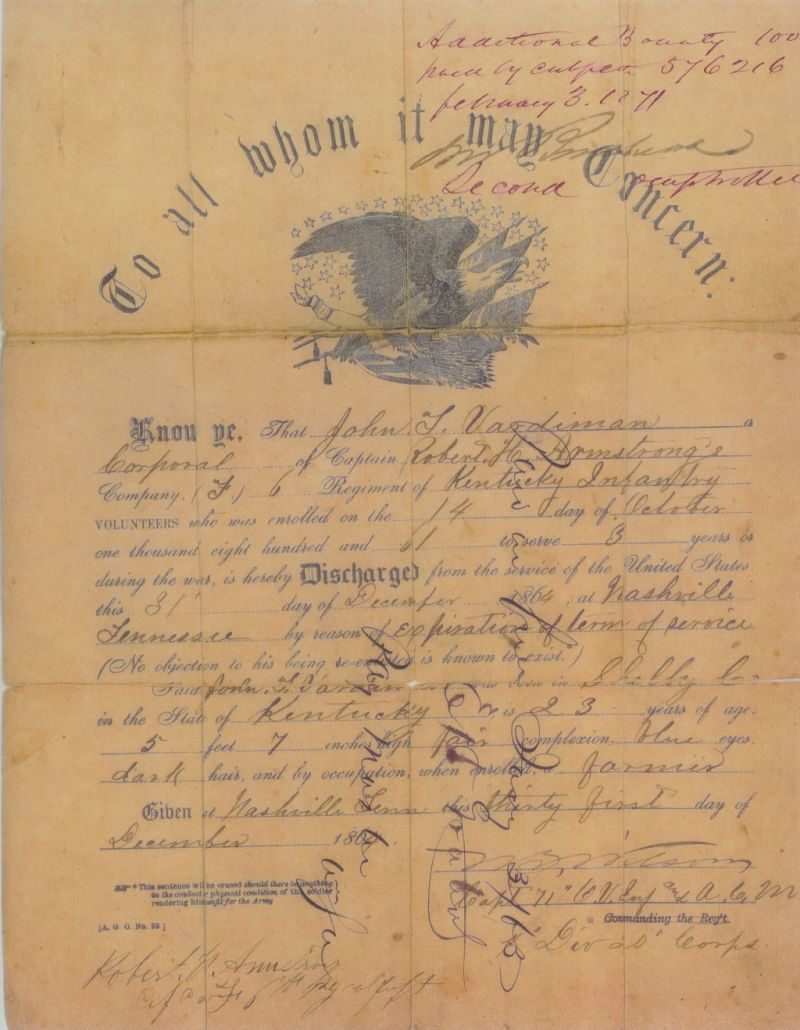 Additional Bounty 100
paid by
576216
February 3. 1871
Second
To all whom it may Concern:
Know ye, That John T. Vardiman a
Corporal of Captain Robert. H. Armstrong's
Company, (F.) 6 Regiment of Kentucky Infantry
VOLUNTEERS who was enrolled on the 14 day of October
one thousand eight hundred and 61 to serve 3 years or
during the war, is hereby Discharged from the service of the United States
this 31 day of December 1864, at Nashville
Tennessee by reason of expiration of term of service
(No objection to his being re-enlisted is known to exist.*)
Said John T. Vardiman was born in Shelby Co
in the State of Kentucky, is 23 years of age,
5 feet 7 inches high, fair complexion, blue eyes,
dark hair, and by occupation, when enrolled, a farmer
Given at Nashville Tenn this thirty first day of
December 1864
Wilson
Capt 71" O. V. Inf and A. C. M
*This sentence will be erased should there be anything
in the conduct or physical condition of the soldier
rendering him unfit for the Army
Commanding the Reg't.
[A. G. O. No. 99]
Div 20" Corps.
Robert. H. Armstrong
Paid in full
Pay Master